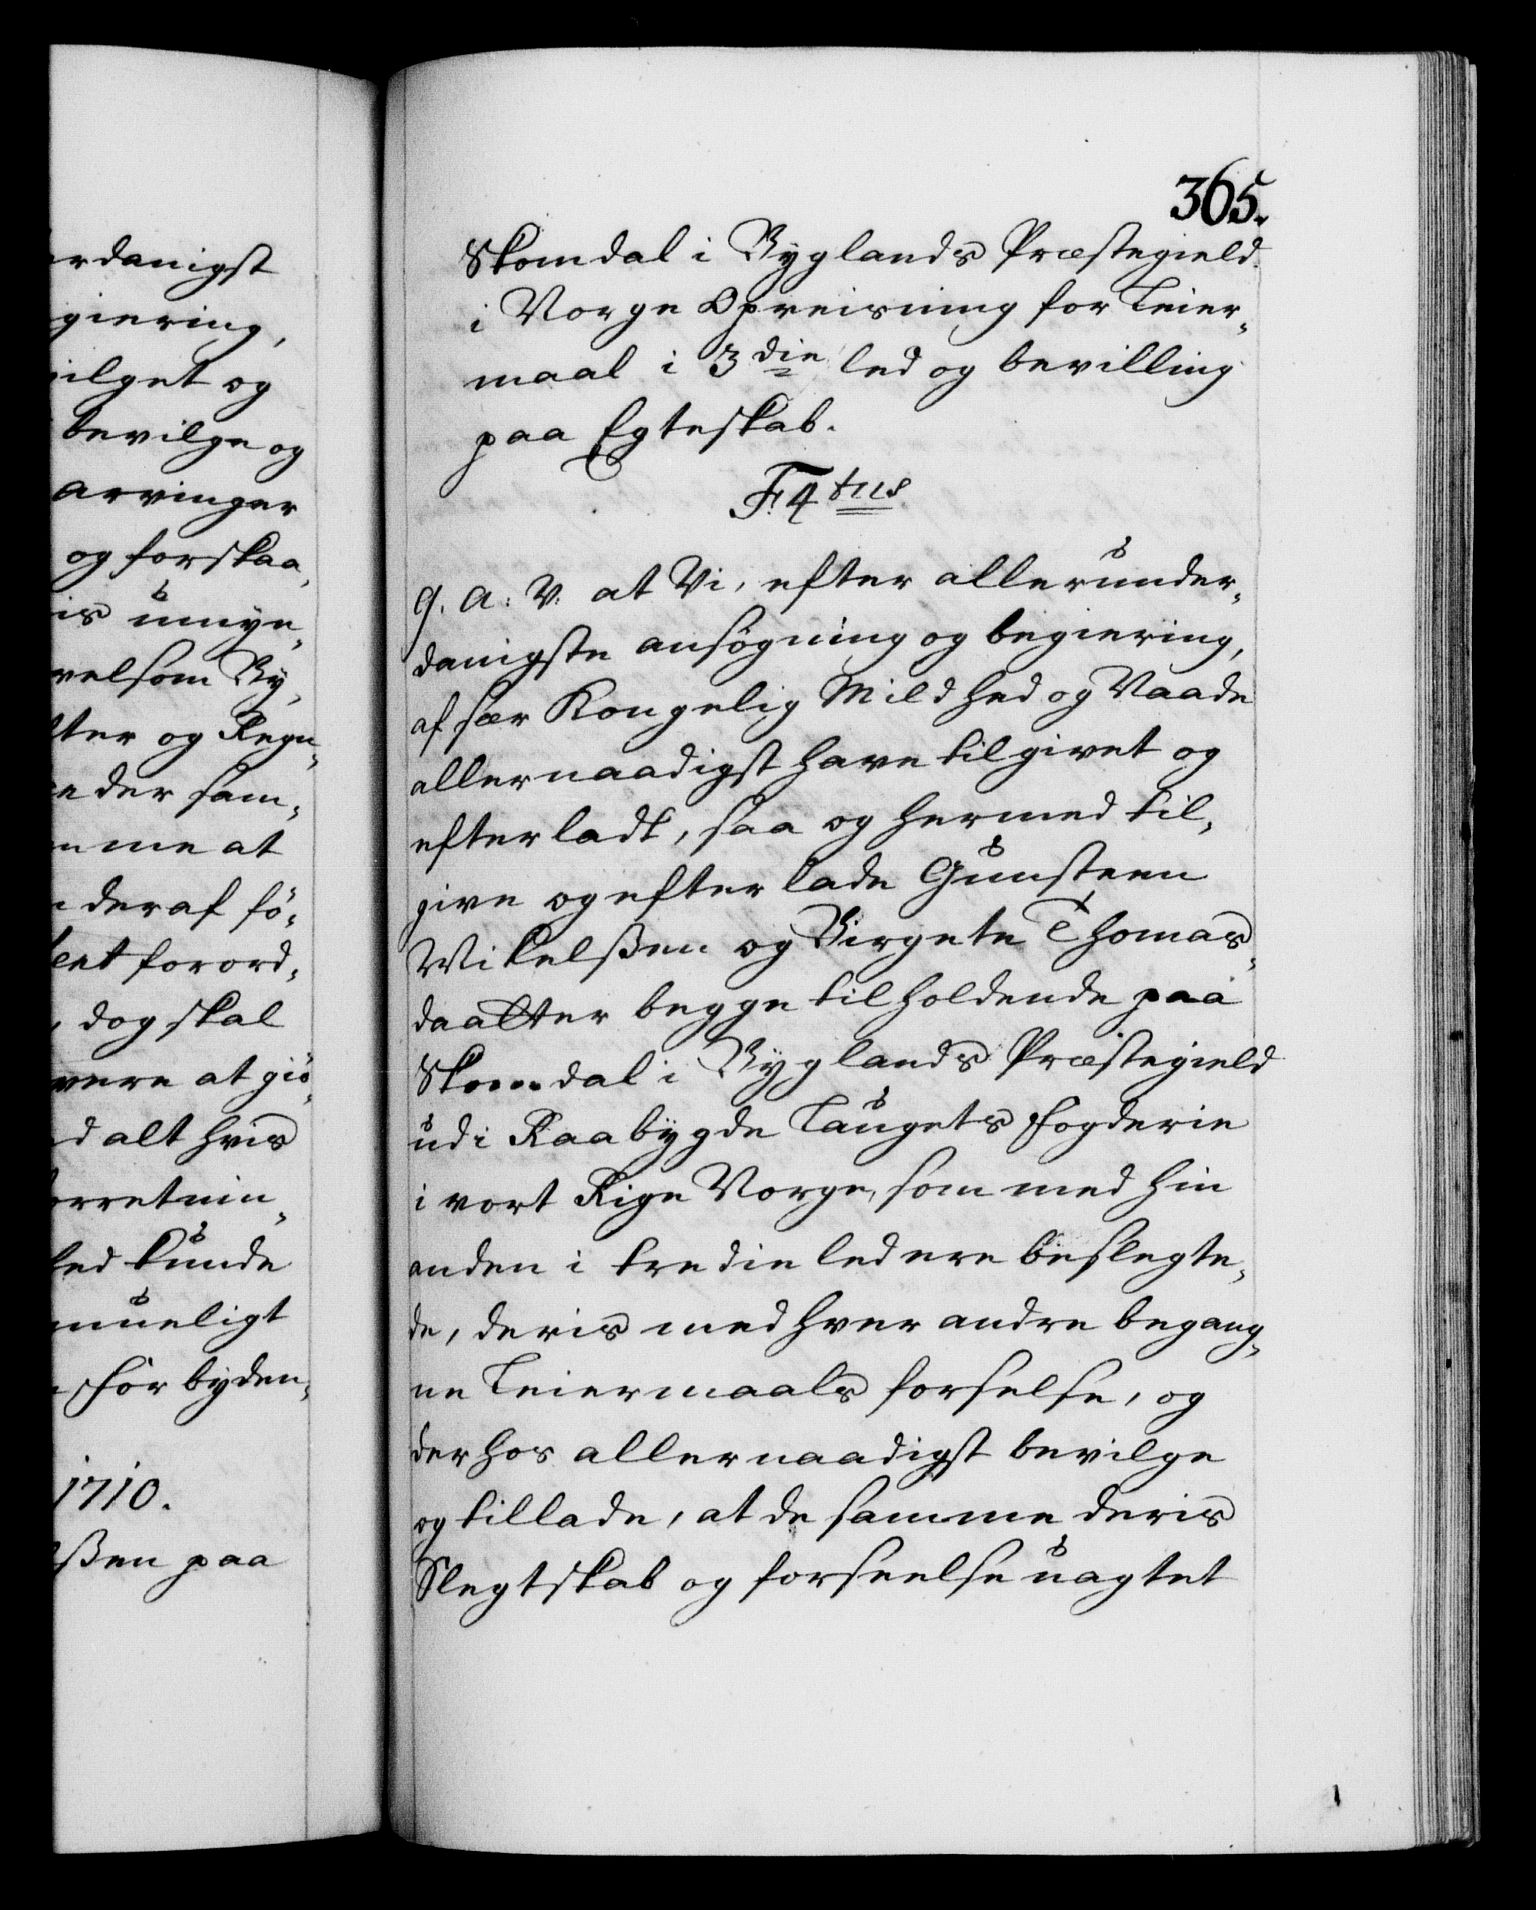 rdanigst
giering,
ilget og
bevilge og
arvinger
og forskaa,
is umyn,
velsom By,
ter og Regn,
eder sam,
mme at
deraf fö,
ent forord,
dog skal
vere at giö,
d alt hvis
orretnin,
ed kunde
mueligt
for byden,
1710.
ßen paa
365.
Skomdal i Byglands Præstegield
i Norge Opreisning for Leier,
maal i 3die led og bevilling
paa Egteskab.
F. 4tus
G. A: V. at Vi, efter allerunder,
danigste ansögning og begiering,
af sær Kongelig Mildhed og Naade
allernaadigst have tilgivet og
efterladt, saa og hermed til,
give og efterlade Gunsteen
Mikelßen og Birgete Thomas,
daatter begge tilholdende paa
Skomdal i Byglands Præstegield
udi Raabygde Laugets Fogderie
i vort Rige Norge, som med hin
anden i tredie led ere beslegte,
de, deris med hver andre begang,
ne Leiermaals forselse, og
derhos allernaadigst bevilge
og tillade, at de samme deris
Slegtskab og forseelse uagtet